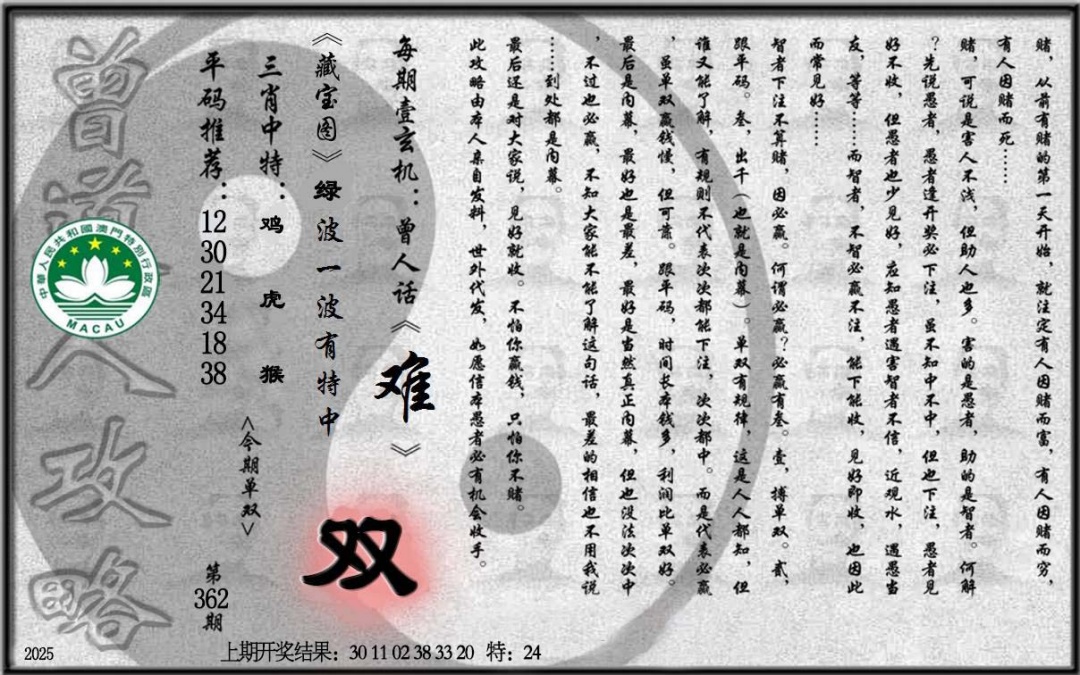 赌，从前有赌的第一天开始，就注定有人因赌而富，有人因赌而穷，
有人因赌而死……
赌，可说是害人不浅，但助人也多。害的是愚者，助的是智者。何解
？先说愚者，愚者逢开奖必下注，虽不知中不中，但也下注，愚者见
好不收，但愚者也少见好，应知愚者遇害智者不信，近观水，遇愚当
友，等等……而智者，不智必赢不注，能下能收，见好即收，也因此
而常见好……
智者下注不算赌，因必赢。何谓必赢？必赢有叁。壹，搏单双。贰，
跟平码。叁，出千（也就是内幕）。单双有规律，这是人人都知，但
谁又能了解，有规则不代表次次都能下注，次次都中。而是代表必赢
，虽单双赢钱慢，但可靠。跟平码，时间长本钱多，利润比单双好。
最后是内幕，最好也是最差，最好是当然真正内幕，但也没法次次中
，不过也必赢，不知大家能不能了解这句话，最差的相信也不用我说
……到处都是内幕。
最后还是对大家说，见好就收。不怕你赢钱，只怕你不赌。
此攻略由本人亲自发料，世外代发，如愿信本愚者必有机会收手。
每期壹玄机：曾人话《难》
《藏宝图》绿波一波有特中
双
三肖中特：鸡 虎 猴
<今期单双>
平码推荐：12 30 21 34 18 38
第362期
曾道人攻略
中華人民共和國澳門特別行政區
MACAU
2025
上期开奖结果：30 11 02 38 33 20 特：24